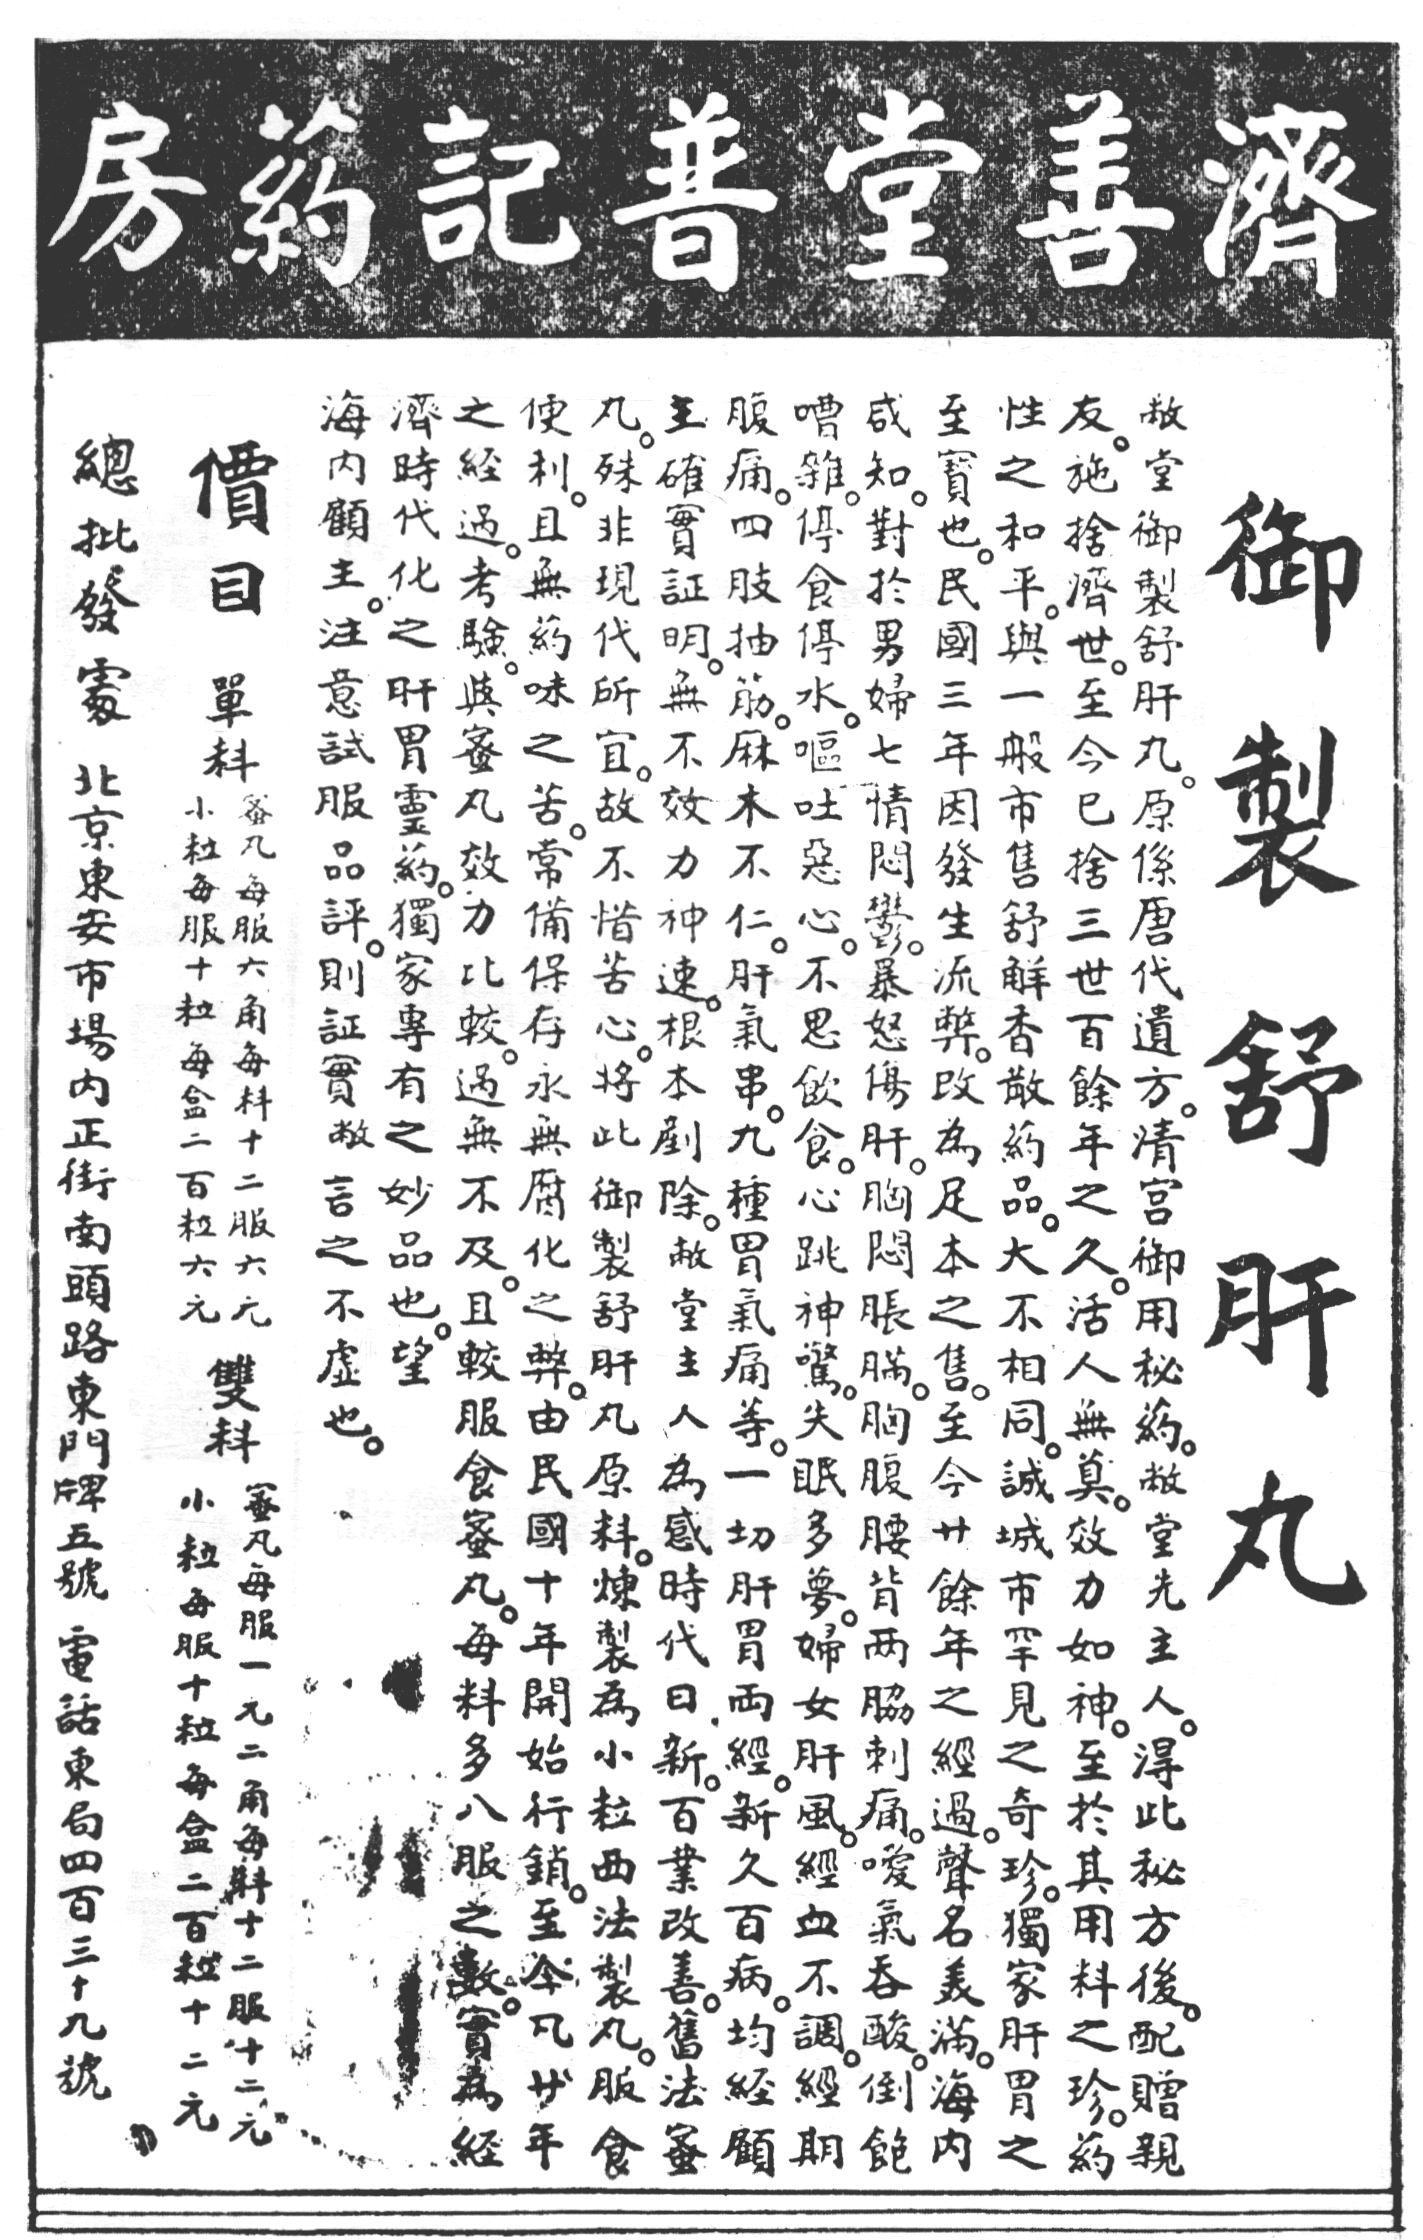 濟善堂普記葯房
御製舒肝丸
敝堂御製舒肝丸。原係唐代遺方。清宮御用秘葯。敝堂先主人。淂此秘方後。配贈親
友。施捨濟世。至今已捨三世百餘年之久。活人無莫。效力如神。至於其用料之珍。葯
性之和平。與一般市售舒觧香散葯品。大不相同。誠城市罕見之奇珍。獨家肝胃之
至寳也。民國三年因發生流弊。改為足本之售。至今廿餘年之經過。聲名美滿。海内
咸知。對於男婦七情悶鬱。暴怒傷肝。胸悶脹滿。胸腹腰背两脇刺痛。噯氣吞酸。倒飽
嘈雜。停食停水。嘔吐惡心。不思飲食。心跳神驚。失眠多夢。婦女肝風。經血不調。經期
腹痛。四肢抽筋。麻木不仁。肝氣串。九種胃氣痛等。一切肝胃両經。新久百病。均經顧
主確實証明。無不效力神速。根本剷除。敝堂主人為感時代日新。百業改善。舊法蜜
丸。殊非現代所宜。故不惜苦心。将此御製舒肝丸原料。煉製為小粒西法製丸。服食
便利。且無葯味之苦。常備保存永無腐化之弊。由民國十年開始行銷。至今凡廿年
之經過。考驗。與蜜丸效力比較。過無不及。且較服食蜜丸。每料多八服之數。實為經
濟時代化之肝胃靈葯。獨家專有之妙品也。望
海内顧主。注意試服品評。則証實敝言之不虛也。
價目 單料 蜜凡每服六角每料十二服六元
小粒每服十粒每盒二百粒六元
雙料 蜜凡每服一元二角每料十二服十二元
小粒每服十粒每盒二百粒十二元
總批發處 北京東安市場内正街南頭路東門牌五號 電話東局四百三十九號